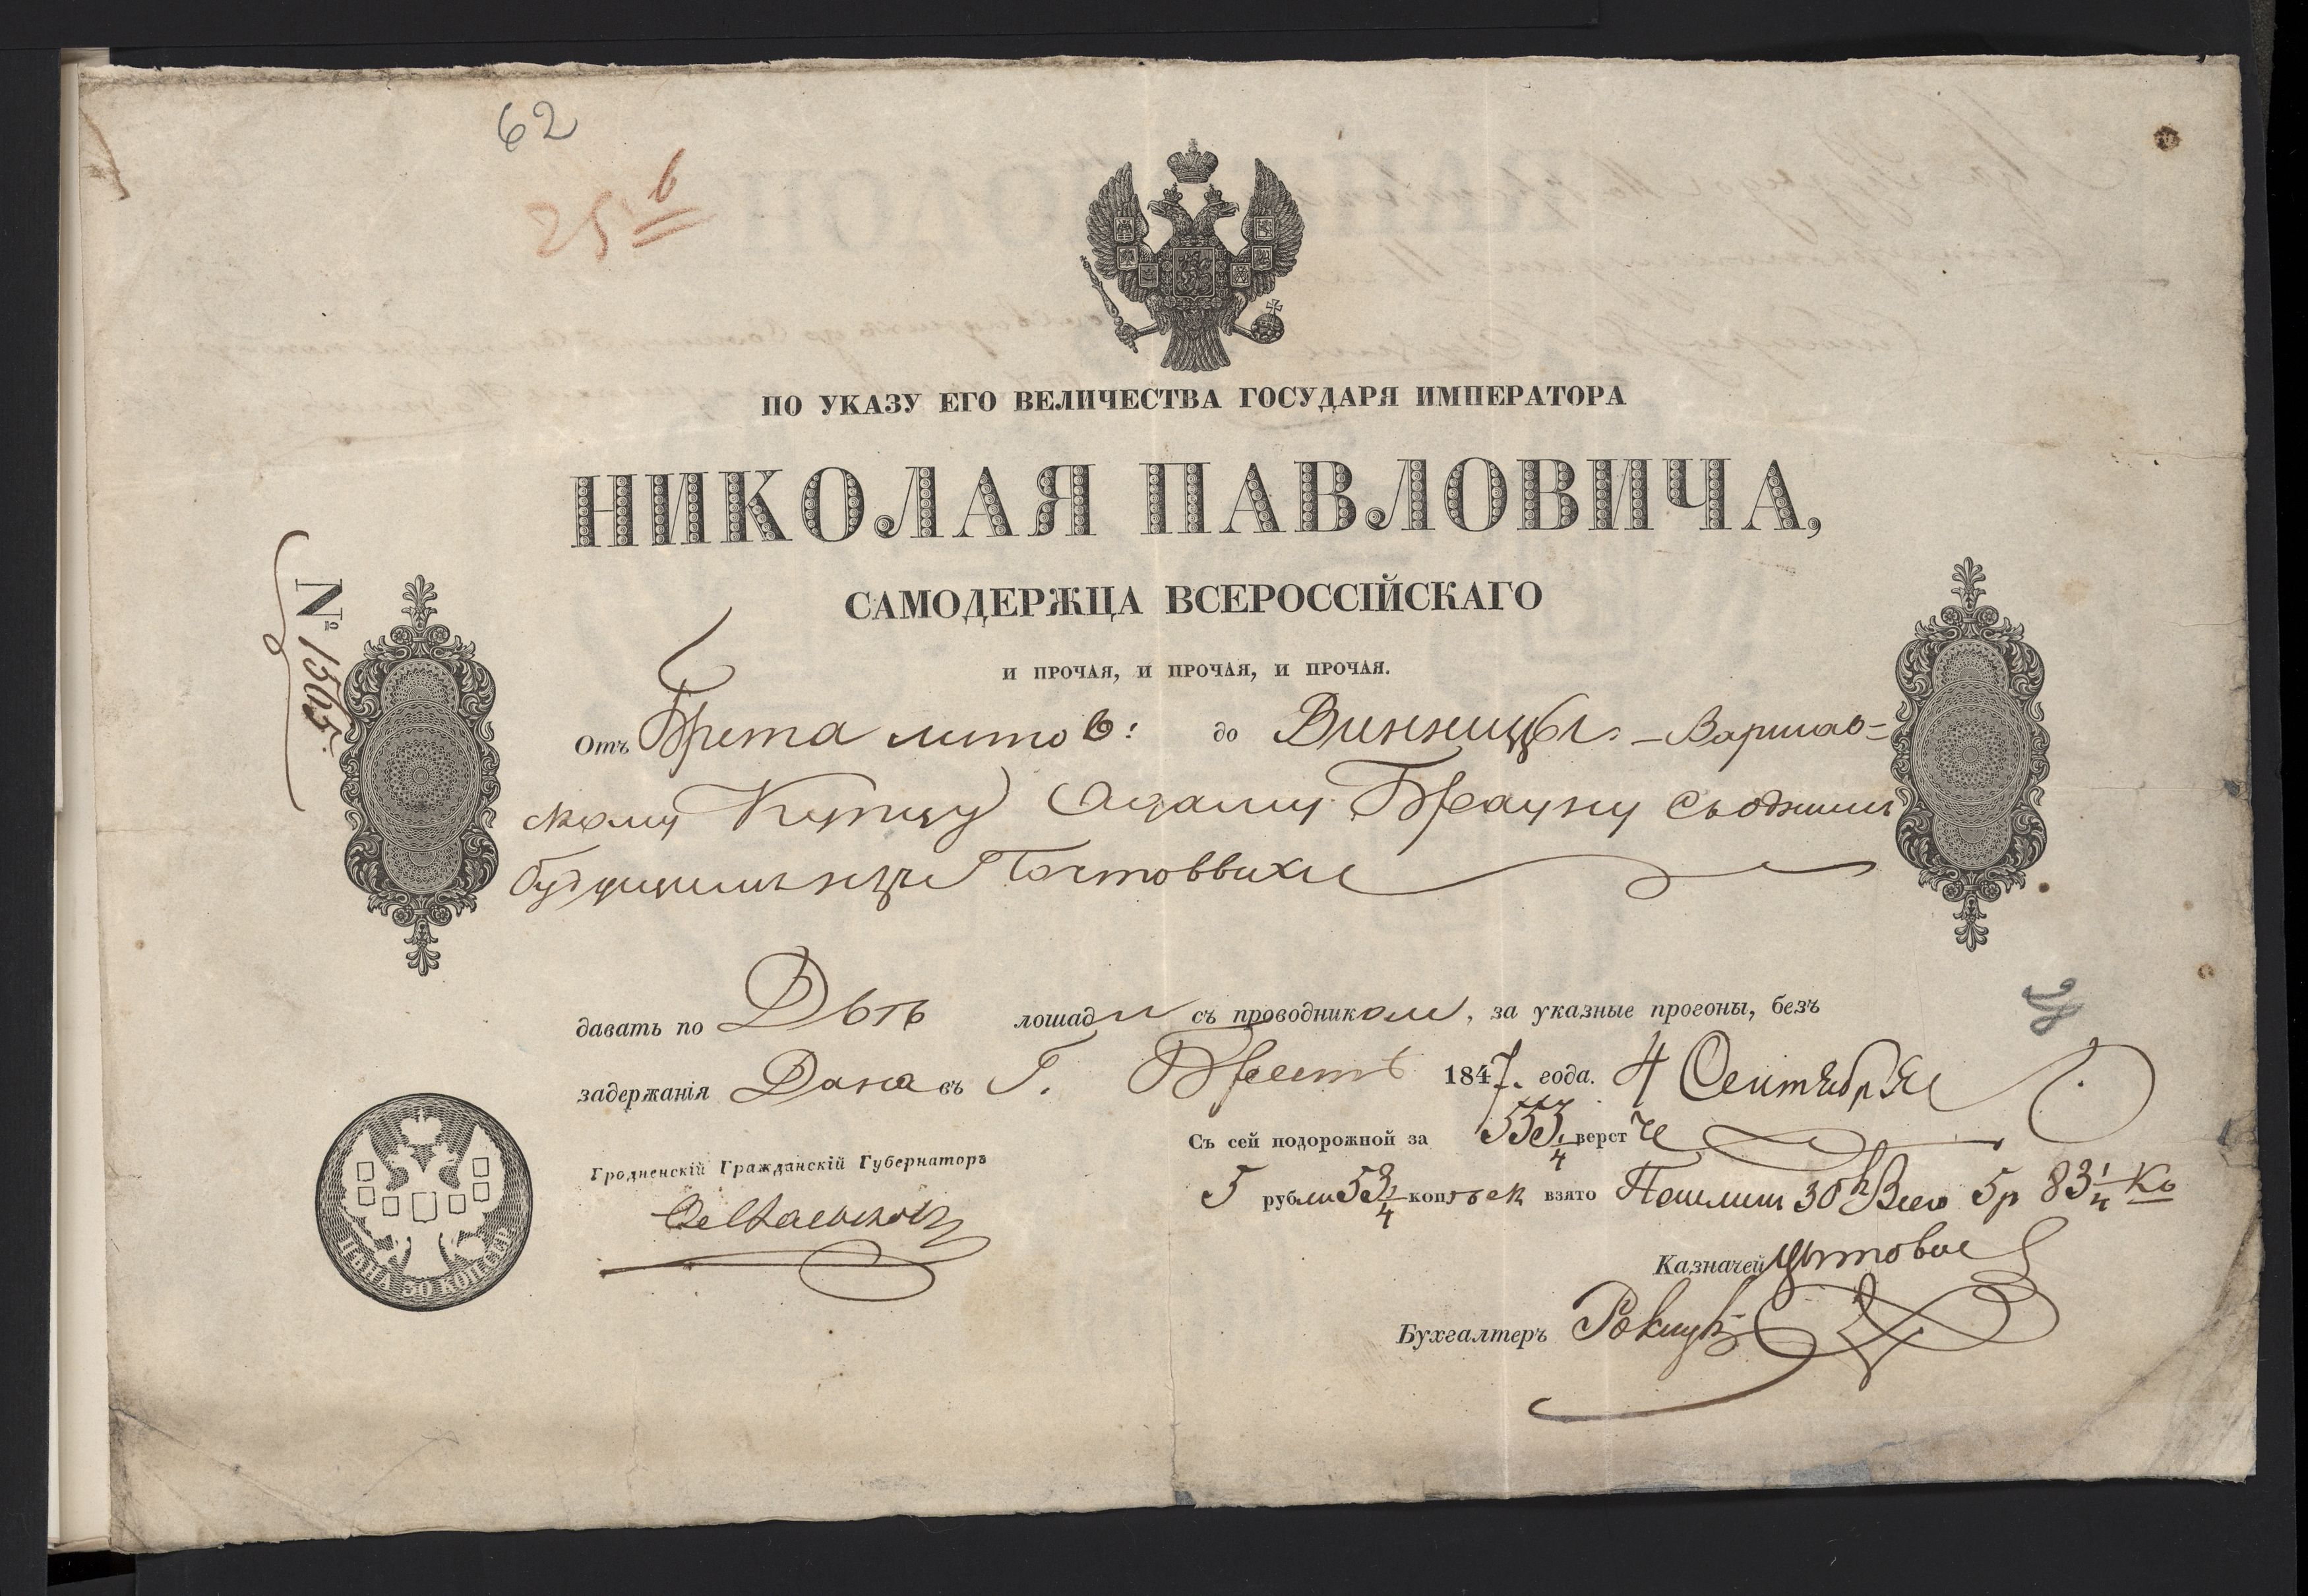 62
25 6
ПО УКАЗУ ЕГО ВЕЛИЧЕСТВА ГОСУДАРЯ ИМПЕРАТОРА
НИКОЛАЯ ПАВЛОВИЧА,
САМОДЕРЖЦА ВСЕРОССІЙСКАГО
И ПРОЧАЯ, И ПРОЧАЯ, И ПРОЧАЯ.
№ 1565.
Отъ Бреста литов: до Винницы. – Варшав=
скому Купцу Адаму Брауну съ однимъ
будущимъ
давать по Двѣ лошади съ проводникомъ, за указные прогоны, безъ
задержанія Дана въ Г. Брестѣ 1847. года. 4 Сентября
Съ сей подорожной за 553 1/4 верст
5 рубли 53 1/4 копѣек взято Пошлин 30 к Всего 5 р 83 1/4 Ко
Гродненскій Гражданскій Губернаторъ
Казначей
Бухгалтеръ
ЦѢНА 30 КОПѢЕКЪ